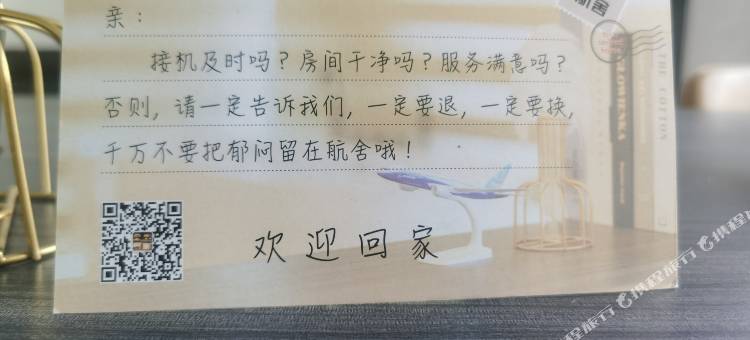 航舍
亲：
接机及时吗？房间干净吗？服务满意吗？
否则，请一定告诉我们，一定要退，一定要换，
千万不要把郁闷留在航舍哦！
欢迎回家
THE COTTON
携程旅行
携程旅行